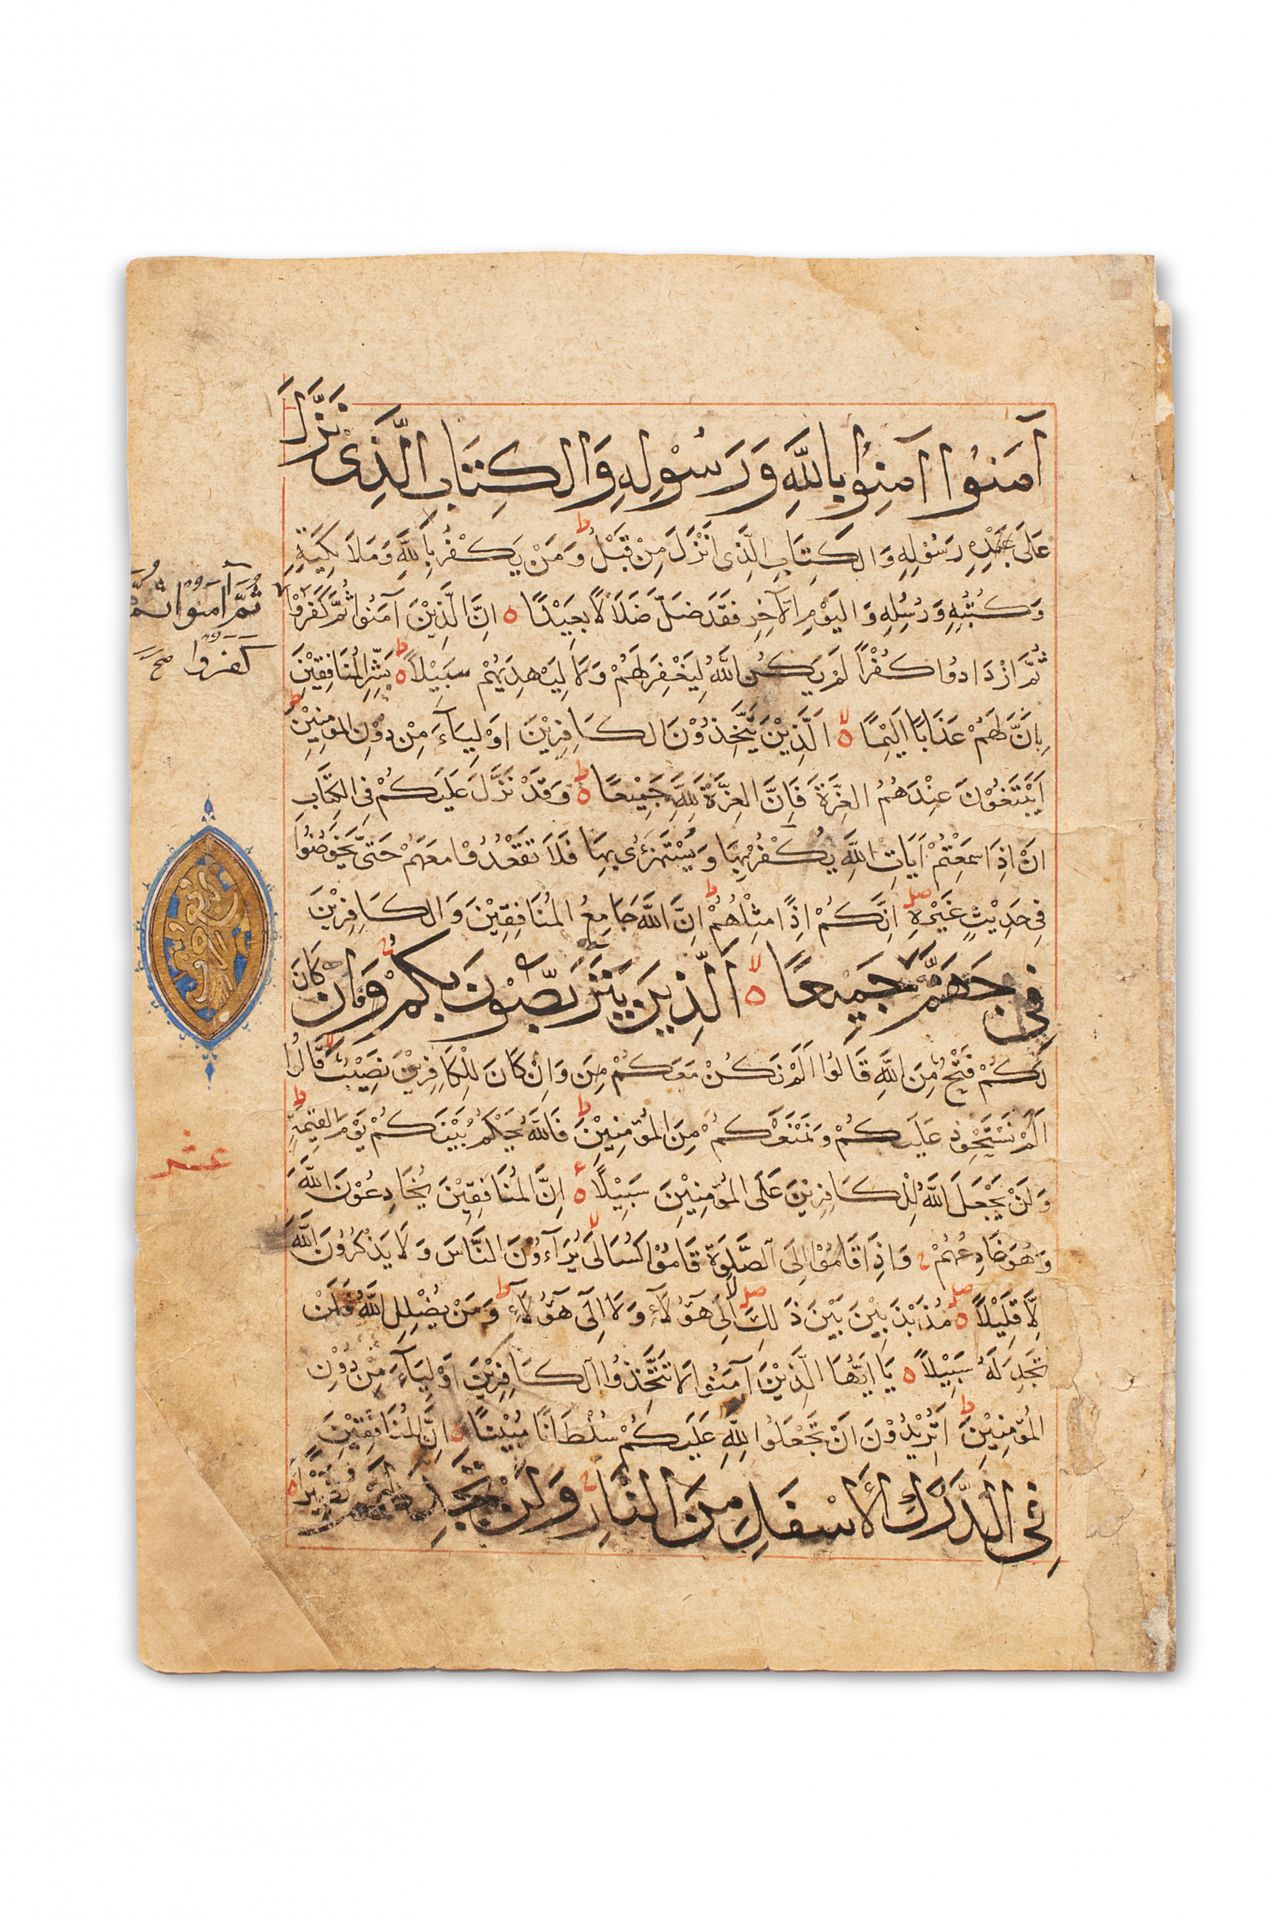 آمَنُوا آمِنُوا بِاللَّهِ وَرَسُوْلِهِ وَالكِتَابِ الَّذِىْ نَزَّلَ
عَلَى عَبْدِهِ رَسُوْلِهِ وَالكِتَابِ الَّذِى اَنْزَلَ مِنْ قَبْلُ ط وَمَنْ يَكْفُرْ بِاللَّهِ وَمَلَائِكَتِهِ
وَكُتُبِهِ وَرُسُلِهِ وَاليَوْمِ الآخِرِ فَقَدْ ضَلَّ ضَلَالًا بَعِيْدًا ه اِنَّ الَّذِيْنَ آمَنُوا ثُمَّ كَفَرُوْا
ثُمَّ ازْدَادُوا كُفْرًا لَمْ يَكُنِ اللَّهُ لِيَغْفِرَ لَهُمْ وَلَا لِيَهْدِيَهُمْ سَبِيْلًا ه ط بَشِّرِ المُنَافِقِيْنَ
بِاَنَّ لَهُمْ عَذَابًا اَلِيْمًا ه لا اَلَّذِيْنَ يَتَّخِذُوْنَ الكَافِرِيْنَ اَوْلِيَآءَ مِنْ دُوْنِ المُؤْمِنِيْنَ ط
اَيَبْتَغُوْنَ عِنْدَهُمُ العِزَّةَ فَاِنَّ العِزَّةَ لِلَّهِ جَمِيْعًا ه ط وَقَدْ نَزَّلَ عَلَيْكُمْ فِى الكِتَابِ
اَنْ اِذَا سَمِعْتُمْ آيَاتِ اللَّهِ يُكْفَرُ بِهَا وَيُسْتَهْزَئُ بِهَا فَلَا تَقْعُدُوْا مَعَهُمْ حَتَّى يَخُوْضُوْا
فِى حَدِيْثٍ غَيْرِهِ صلے اِنَّكُمْ اِذًا مِثْلُهُمْ ط اِنَّ اللَّهَ جَامِعُ المُنَافِقِيْنَ وَالكَافِرِيْنَ
فِى جَهَنَّمَ جَمِيْعًا ه لا اَلَّذِيْنَ يَتَرَبَّصُوْنَ بِكُمْ وَاِنْ كَانَ
لَكُمْ فَتْحٌ مِنَ اللَّهِ قَالُوا اَلَمْ نَكُنْ مَعَكُمْ وَاِنْ كَانَ لِلْكَافِرِيْنَ نَصِيْبٌ لا قَالُوا
اَلَمْ نَسْتَحْوِذْ عَلَيْكُمْ وَنَمْنَعْكُمْ مِنَ المُؤْمِنِيْنَ ط فَاللَّهُ يَحْكُمُ بَيْنَكُمْ يَوْمَ القِيٰمَةِ ط
وَلَنْ يَجْعَلَ اللَّهُ لِلْكَافِرِيْنَ عَلَى المُؤْمِنِيْنَ سَبِيْلًا ه ع اِنَّ المُنَافِقِيْنَ يُخَادِعُوْنَ اللَّهَ
وَهُوَ خَادِعُهُمْ ج وَاِذَا قَامُوْا اِلَى الصَّلٰوةِ قَامُوْا كُسَالَى لا يُرَآءُوْنَ النَّاسَ وَلَا يَذْكُرُوْنَ اللَّهَ
لَّا قَلِيْلًا ه صلے مُذَبْذَبِيْنَ بَيْنَ ذَلِكَ صلے لَا اِلَى هَؤُلَآءِ وَلَا اِلَى هَؤُلَآءِ ط وَمَنْ يُضْلِلِ اللَّهُ فَلَنْ
تَجِدَ لَهُ سَبِيْلًا ه يَا اَيُّهَا الَّذِيْنَ آمَنُوا لَا تَتَّخِذُوا الكَافِرِيْنَ اَوْلِيَآءَ مِنْ دُوْنِ
المُؤْمِنِيْنَ ط اَتُرِيْدُوْنَ اَنْ تَجْعَلُوا لِلَّهِ عَلَيْكُمْ سُلْطَانًا مُبِيْنًا ه اِنَّ المُنَافِقِيْنَ
فِى الدَّرْكِ الأَسْفَلِ مِنَ النَّارِ ج وَلَنْ تَجِدَ لَهُمْ نَصِيْرًا ه
ثُمَّ آمَنُوا ثُمَّ
كَفَرُوا صح
عشر